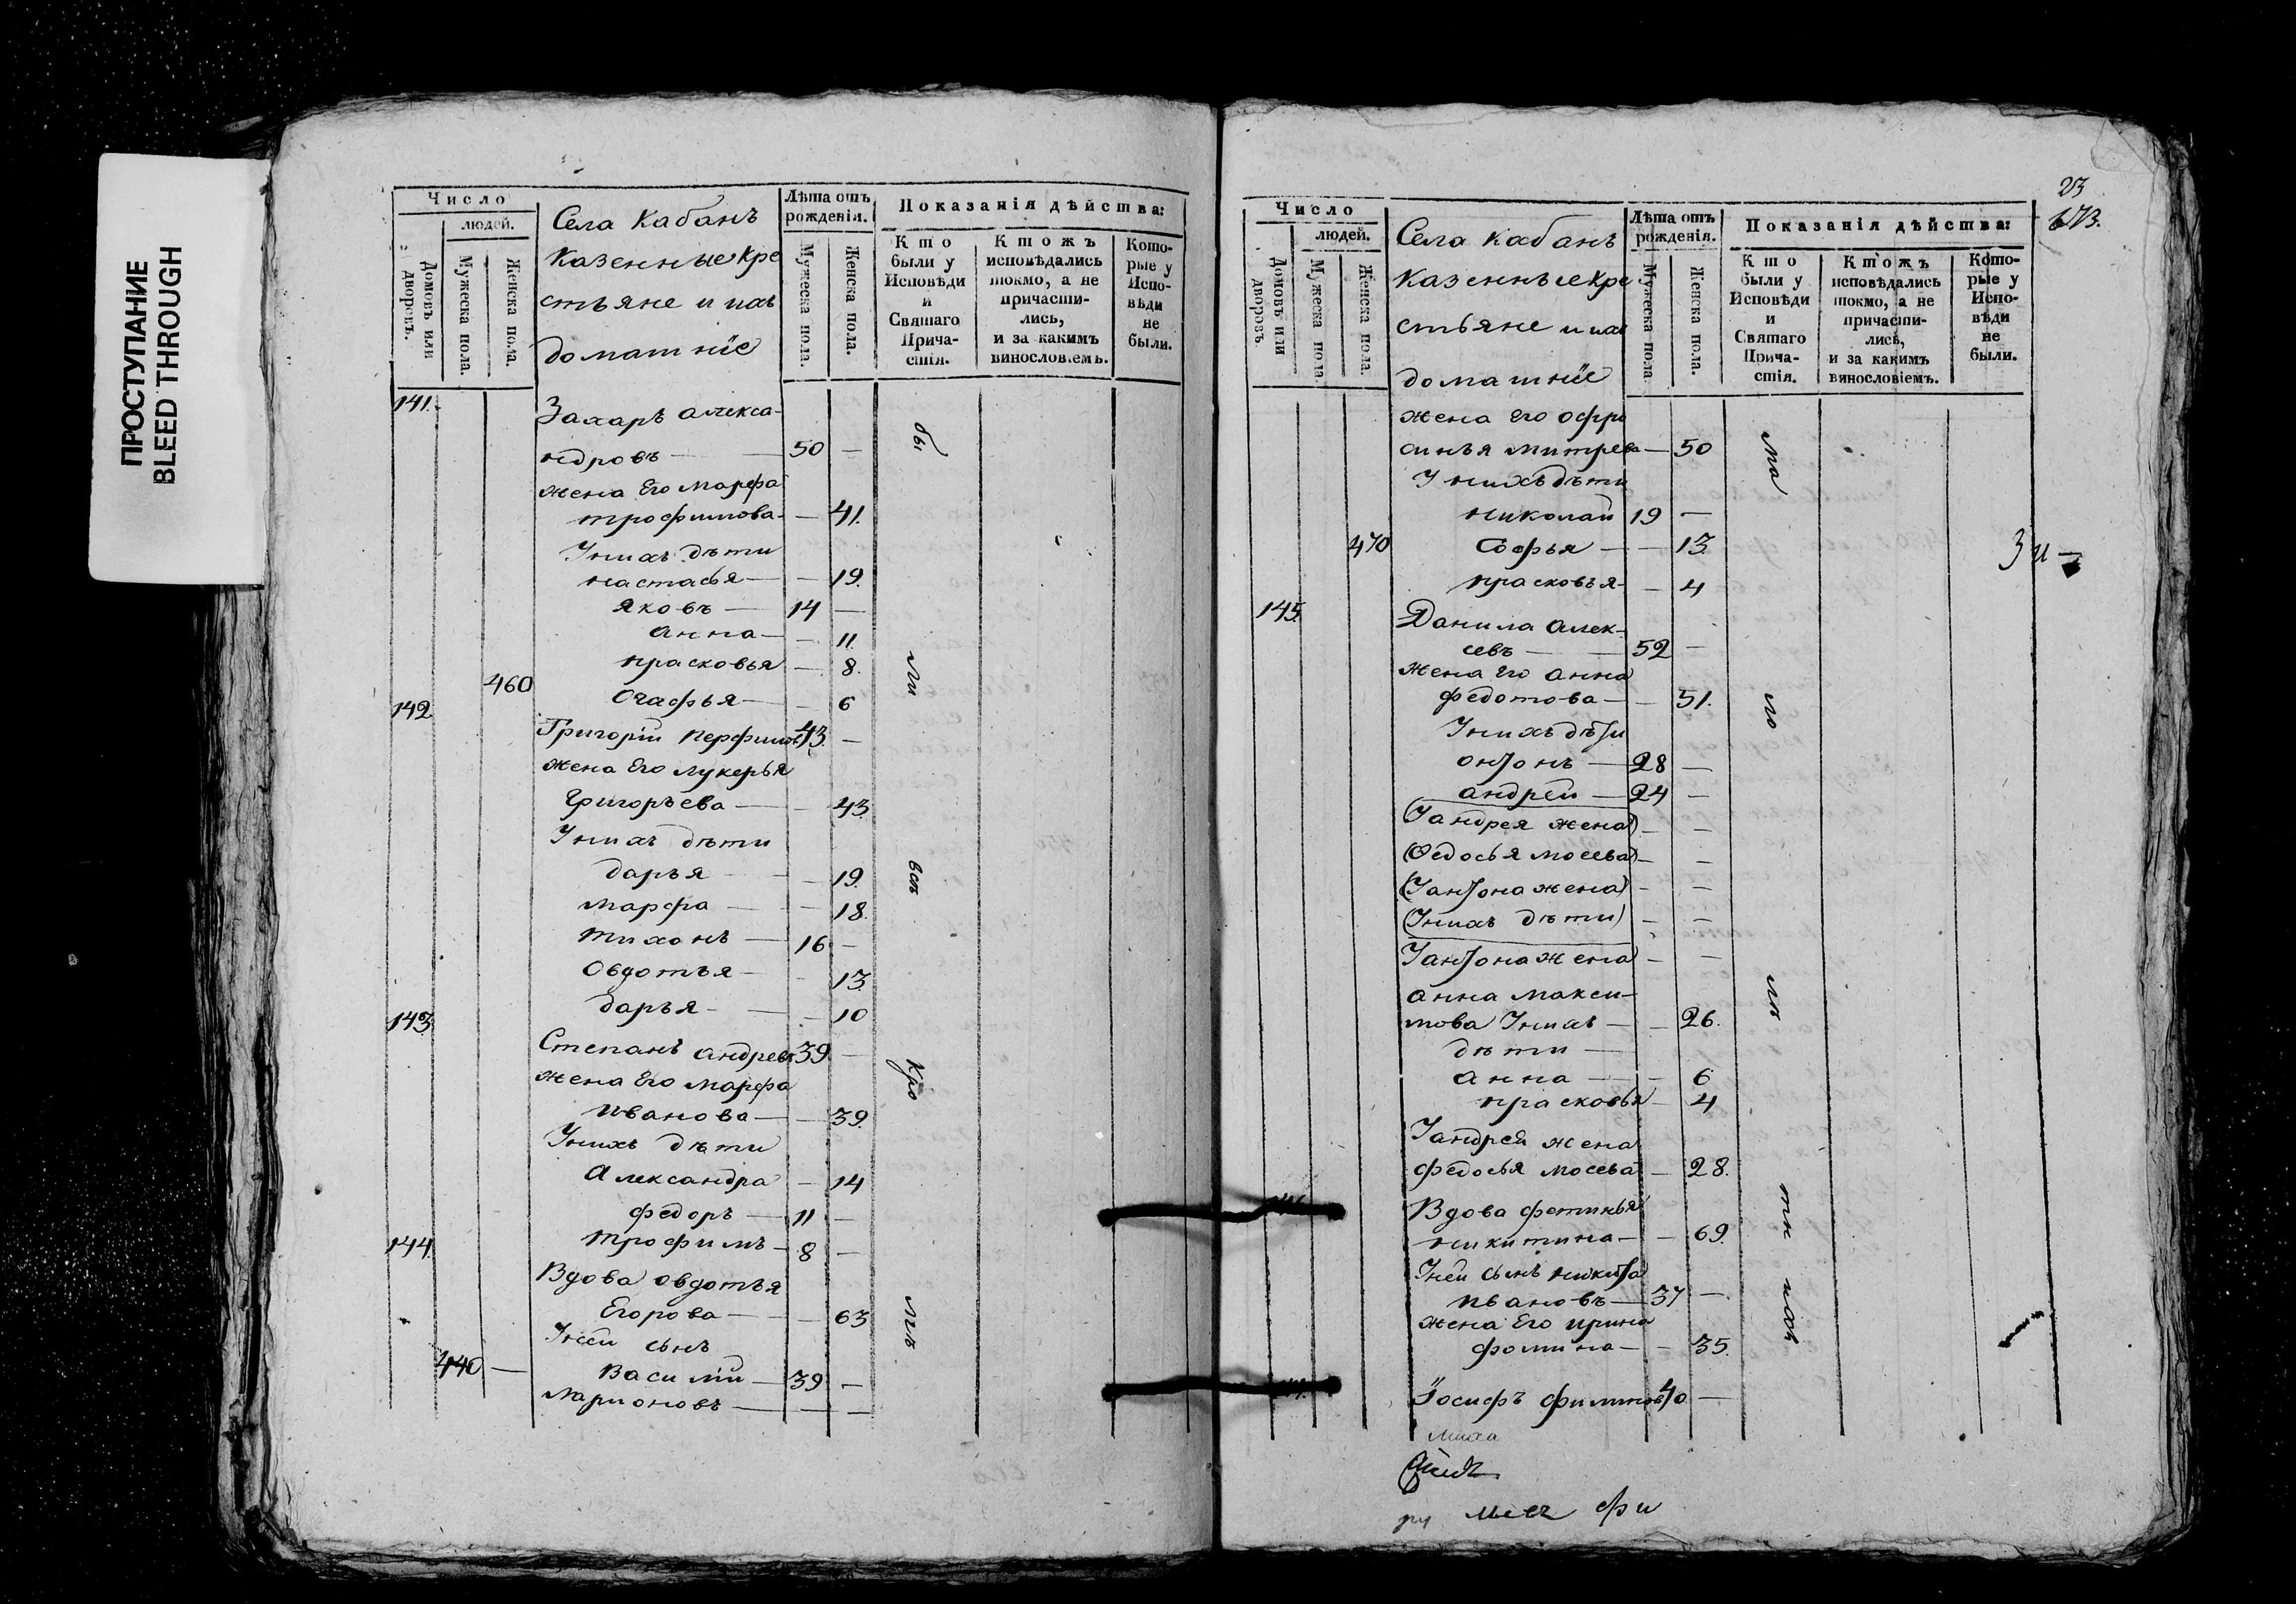 ПРОСТУПАНИЕ
BLEED THROUGH
Число
людей.
Домовъ или дворовъ.
Мужеска пола.
Женска пола.
Села Кабанъ
Казенные кре
стьяне и ихъ
домашніе
Лѣта отъ рожденія.
Мужеска пола.
Женска пола.
Показанія дѣйства:
Кто были у Исповѣди и Святаго Прича-стія.
Ктожъ исповѣдались токмо, а не причасти-лись, и за какимъ винословіемъ.
Кото-рые у Испо-вѣди не были.
141. Захаръ алекса-
ндровъ — 50 —
жена Его марфа
трофимова — — 41.
Унихъ дѣти
настасья — — 19.
яковъ — 14 —
анна — — 11.
прасковья — 8.
460 Огафья — — 6
142 Григорій перфилов 43. —
жена Его лукерья
Григорьева — — 43
Унихъ дѣти
дарья — — 19.
марфа — — 18.
тихонъ — 16 —
Овдотья — — 13.
дарья — — 10
143. Степанъ андрев 39. —
жена Его марфа
иванова — — 39.
Унихъ дѣти
Александра — 14
федоръ — 11 —
144. трофимъ — 8 —
Вдова овдотья
Егорова — — 63
Уней сынъ
440 — Василий — 39 —
Ларионовъ — — —
бы
ли
всѣ
кро
мѣ
23
Число
людей.
Домовъ или дворовъ.
Мужеска пола.
Женска пола.
Села Кабанъ
Казенные кре
стьяне и ихъ
домашніе
Лѣта отъ рожденія.
Мужеска пола.
Женска пола.
Показанія дѣйства:
Кто были у Исповѣди и Святаго Прича-стія.
Ктожъ исповѣдались токмо, а не причасти-лись, и за какимъ винословіемъ.
Кото-рые у Испо-вѣди не были.
жена Его офро
синья митрева — 50
Унихъ дѣти
николай 19 —
470 Софья — — 13
прасковья — — 4
145. Данила алек-
севъ — 52 —
жена Его анна
федотова — — 51.
Унихъ дѣти
онтонъ — 28 —
андрей — 24 —
(Уандрея жена) — —
(Федосья мосева) — —
(Уантона жена) — —
(Унихъ дѣти) — —
Уантона жена — —
анна макси-
мова Унихъ — — 26.
дѣти —
анна — — 6
прасковья — 4
Уандрея жена
федосья мосева — 28.
Вдова фетинья
никитина — — 69.
Уней сынъ никита
ивановъ — 37 —
жена Его ирина
фомина — — 35.
Іосифъ филипов 40 —
ма
ло
лѣ
тн
ихъ